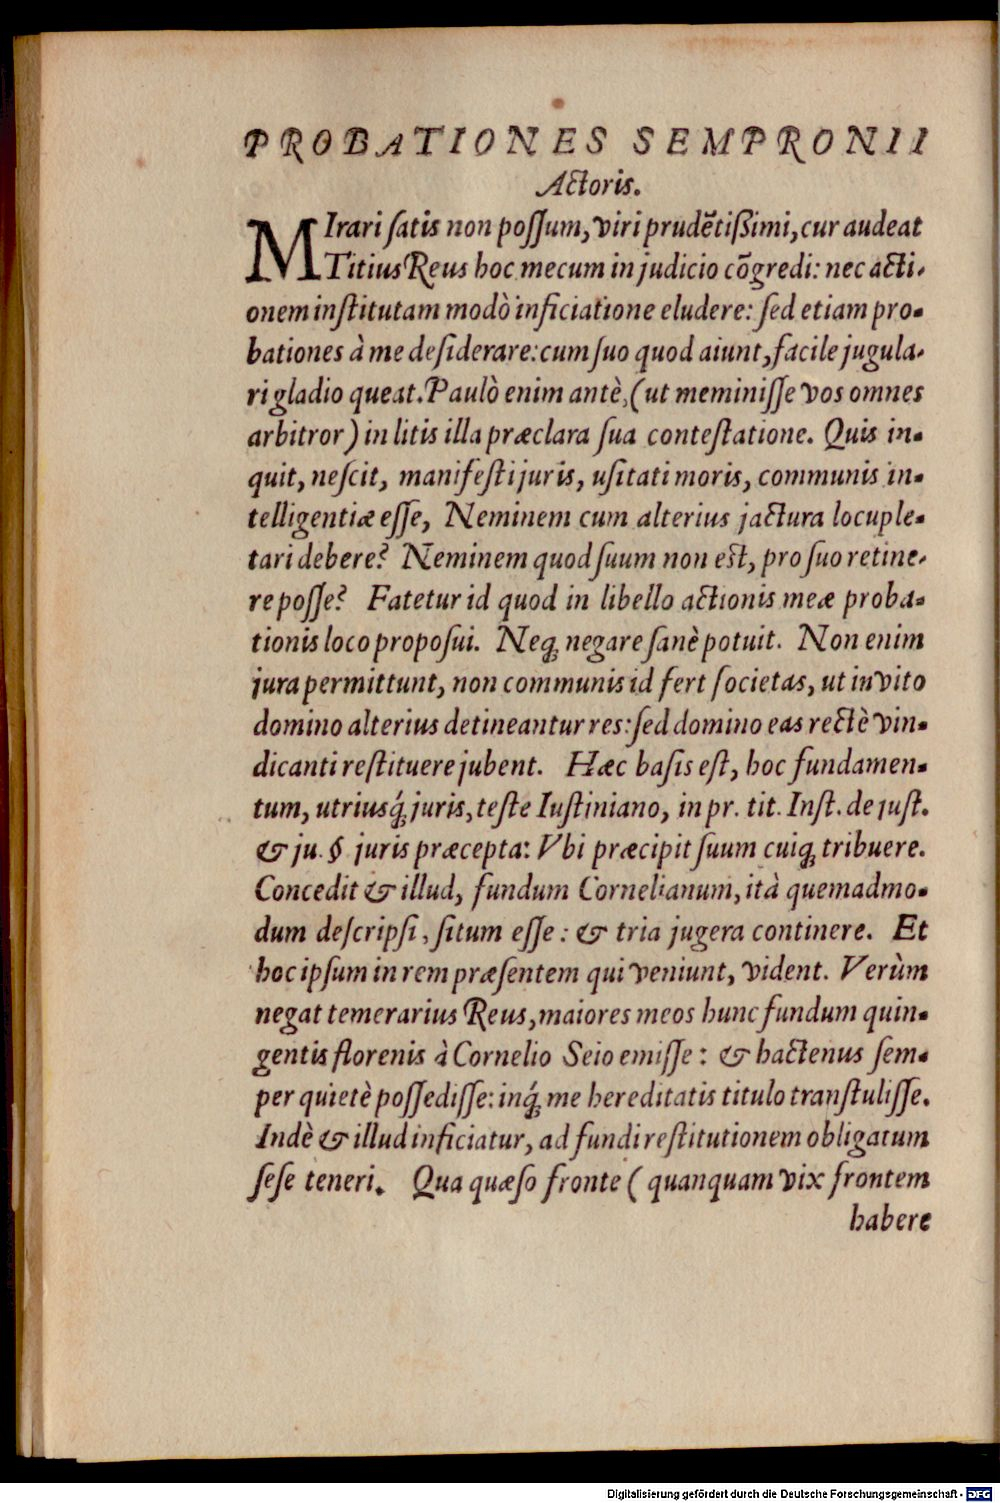 PROBATIONES SEMPRONII
Actoris.
MIrari ſatis non poſſum, viri prudẽtiſsimi, cur audeat
Titius Reus hoc mecum in judicio cõgredi: nec acti-
onem inſtitutam modò inficiatione eludere: ſed etiam pro-
bationes à me deſiderare: cum ſuo quod aiunt, facile jugula-
ri gladio queat. Paulò enim antè, (ut meminiſſe vos omnes
arbitror) in litis illa præclara ſua conteſtatione. Quis in-
quit, neſcit, manifeſti juris, uſitati moris, communis in-
telligentiæ eſſe, Neminem cum alterius jactura locuple-
tari debere? Neminem quod ſuum non est, pro ſuo retine-
re poſſe? Fatetur id quod in libello actionis meæ proba-
tionis loco propoſui. Neq; negare ſanè potuit. Non enim
jura permittunt, non communis id fert ſocietas, ut invito
domino alterius detineantur res: ſed domino eas rectè vin-
dicanti reſtituere jubent. Hæc baſis eſt, hoc fundamen-
tum, utriusq́; juris, teſte Iuſtiniano, in pr. tit. Inſt. de juſt.
& ju. § juris præcepta: Vbi præcipit ſuum cuiq; tribuere.
Concedit & illud, fundum Cornelianum, ità quemadmo-
dum deſcripſi, ſitum eſſe: & tria jugera continere. Et
hoc ipſum in rem præſentem qui veniunt, vident. Verùm
negat temerarius Reus, maiores meos hunc fundum quin-
gentis florenis à Cornelio Seio emiſſe: & hactenus ſem-
per quietè poſſediſſe: inq́; me hereditatis titulo tranſtuliſſe.
Indè & illud inficiatur, ad fundi reſtitutionem obligatum
ſeſe teneri. Qua quæſo fronte (quanquam vix frontem
habere
Digitalisierung gefördert durch die Deutsche Forschungsgemeinschaft - DFG